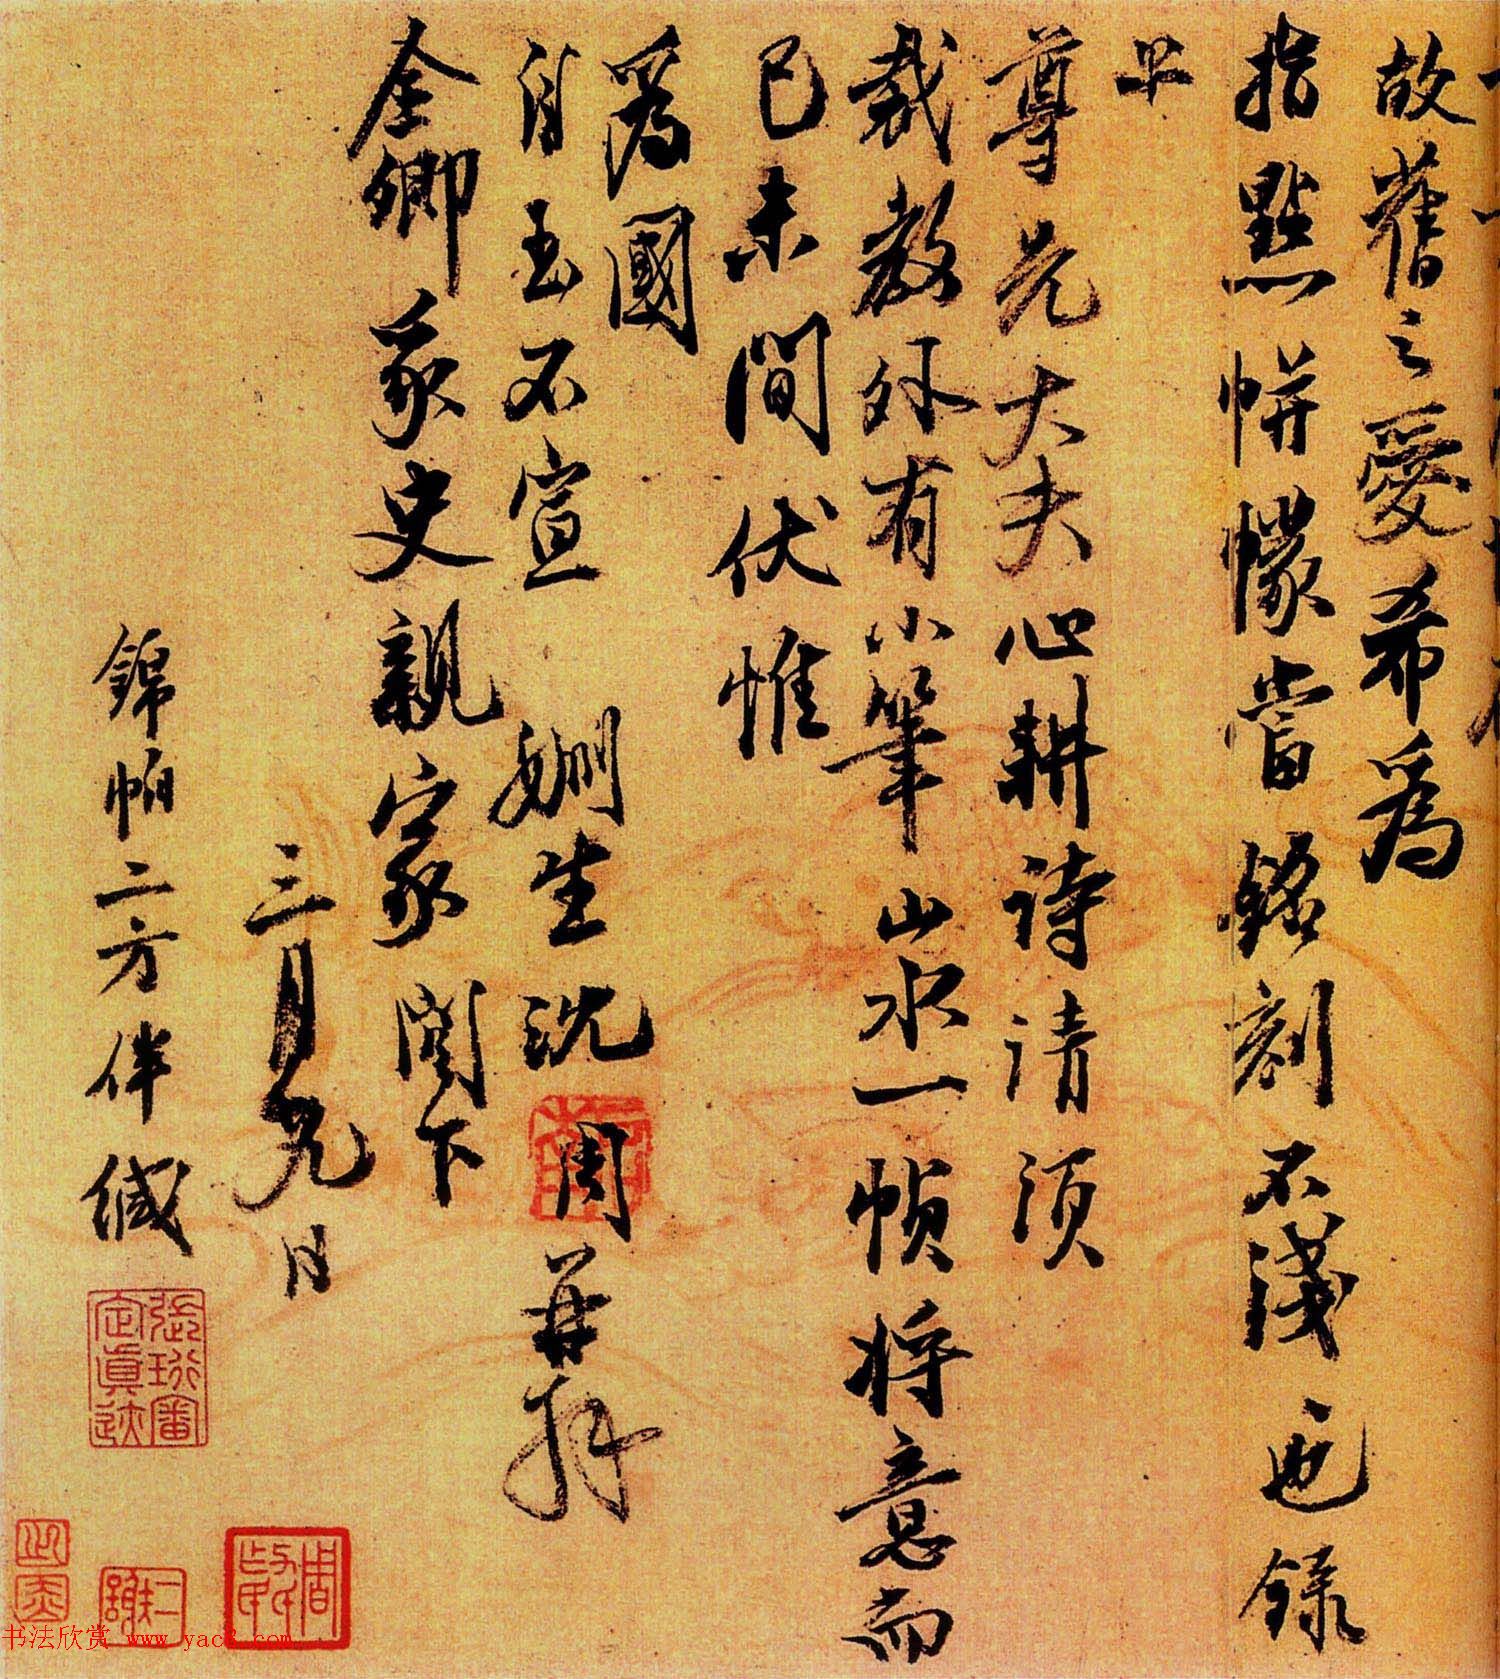 故舊之愛希爲
指點帡幪當銘刻不淺也錄
上
尊先大夫心耕詩請須
裁教外有小筆山水一幀將意而
已未間伏惟
爲國
自玉不宣　姻生沈周再拜
全卿冢史親家閣下
三月九日
錦帕二方伴緘
書法欣赏 www.yac8.com